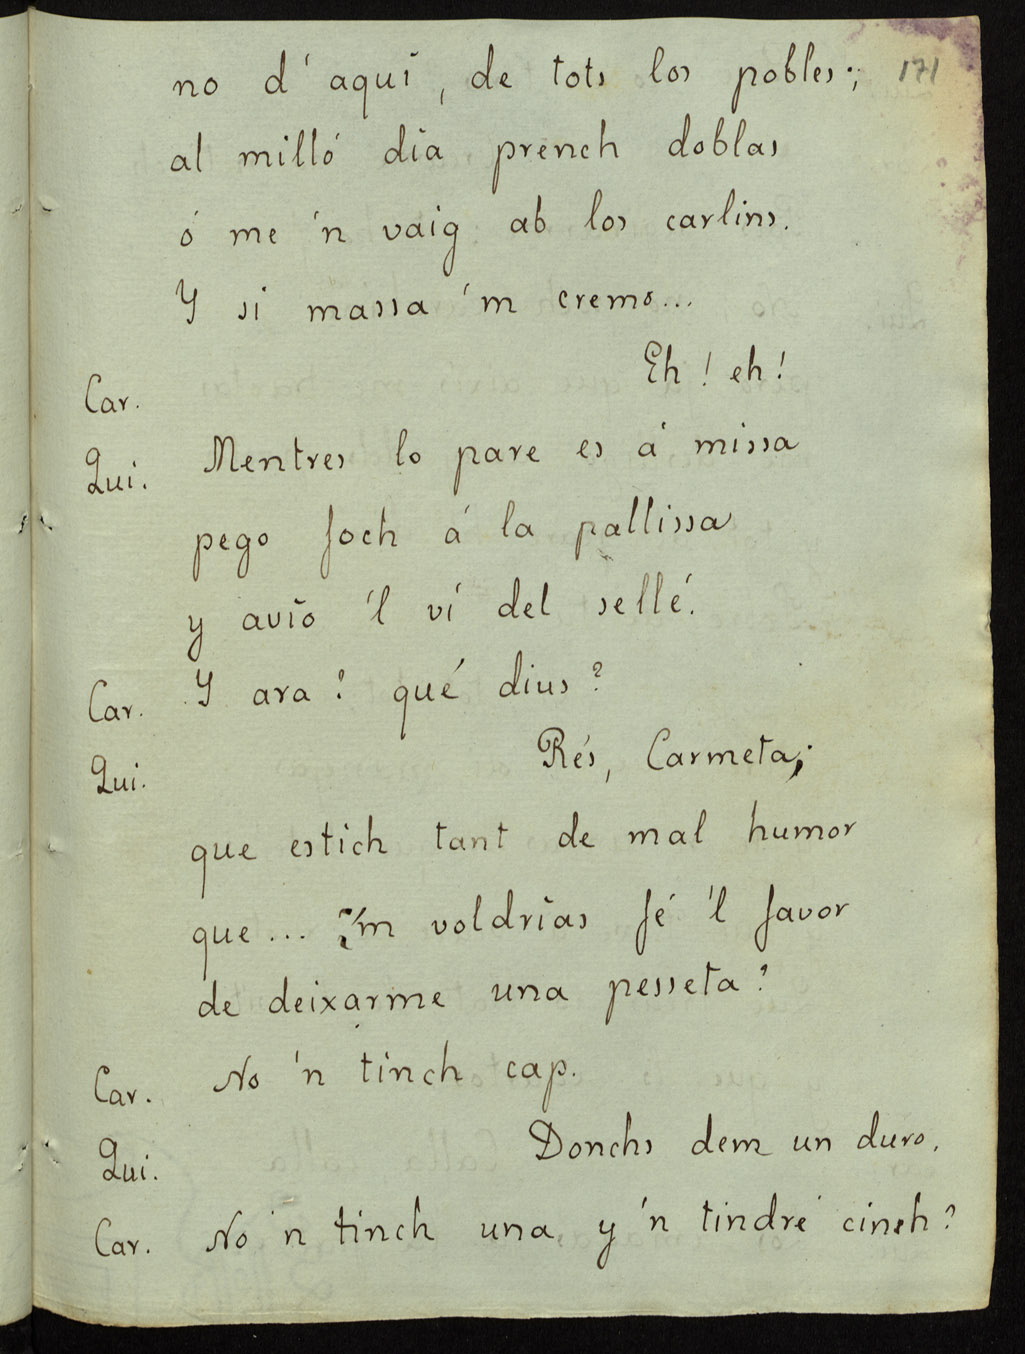 171
no d'aquí, de tots los pobles;
al milló día prench doblas
ó me 'n vaig ab los carlins.
Y si massa 'm cremo...
Car. Eh! eh!
Qui. Mentres lo pare es á missa
pego foch á la pallissa
y avío 'l ví del sellé.
Car. Y ara! qué dius?
Qui. Rés, Carmeta;
que estich tant de mal humor
que... ¿'m voldrías fé 'l favor
de deixarme una pesseta?
Car. No 'n tinch cap.
Qui. Donchs dem un duro.
Car. No 'n tinch una y 'n tindré cinch?